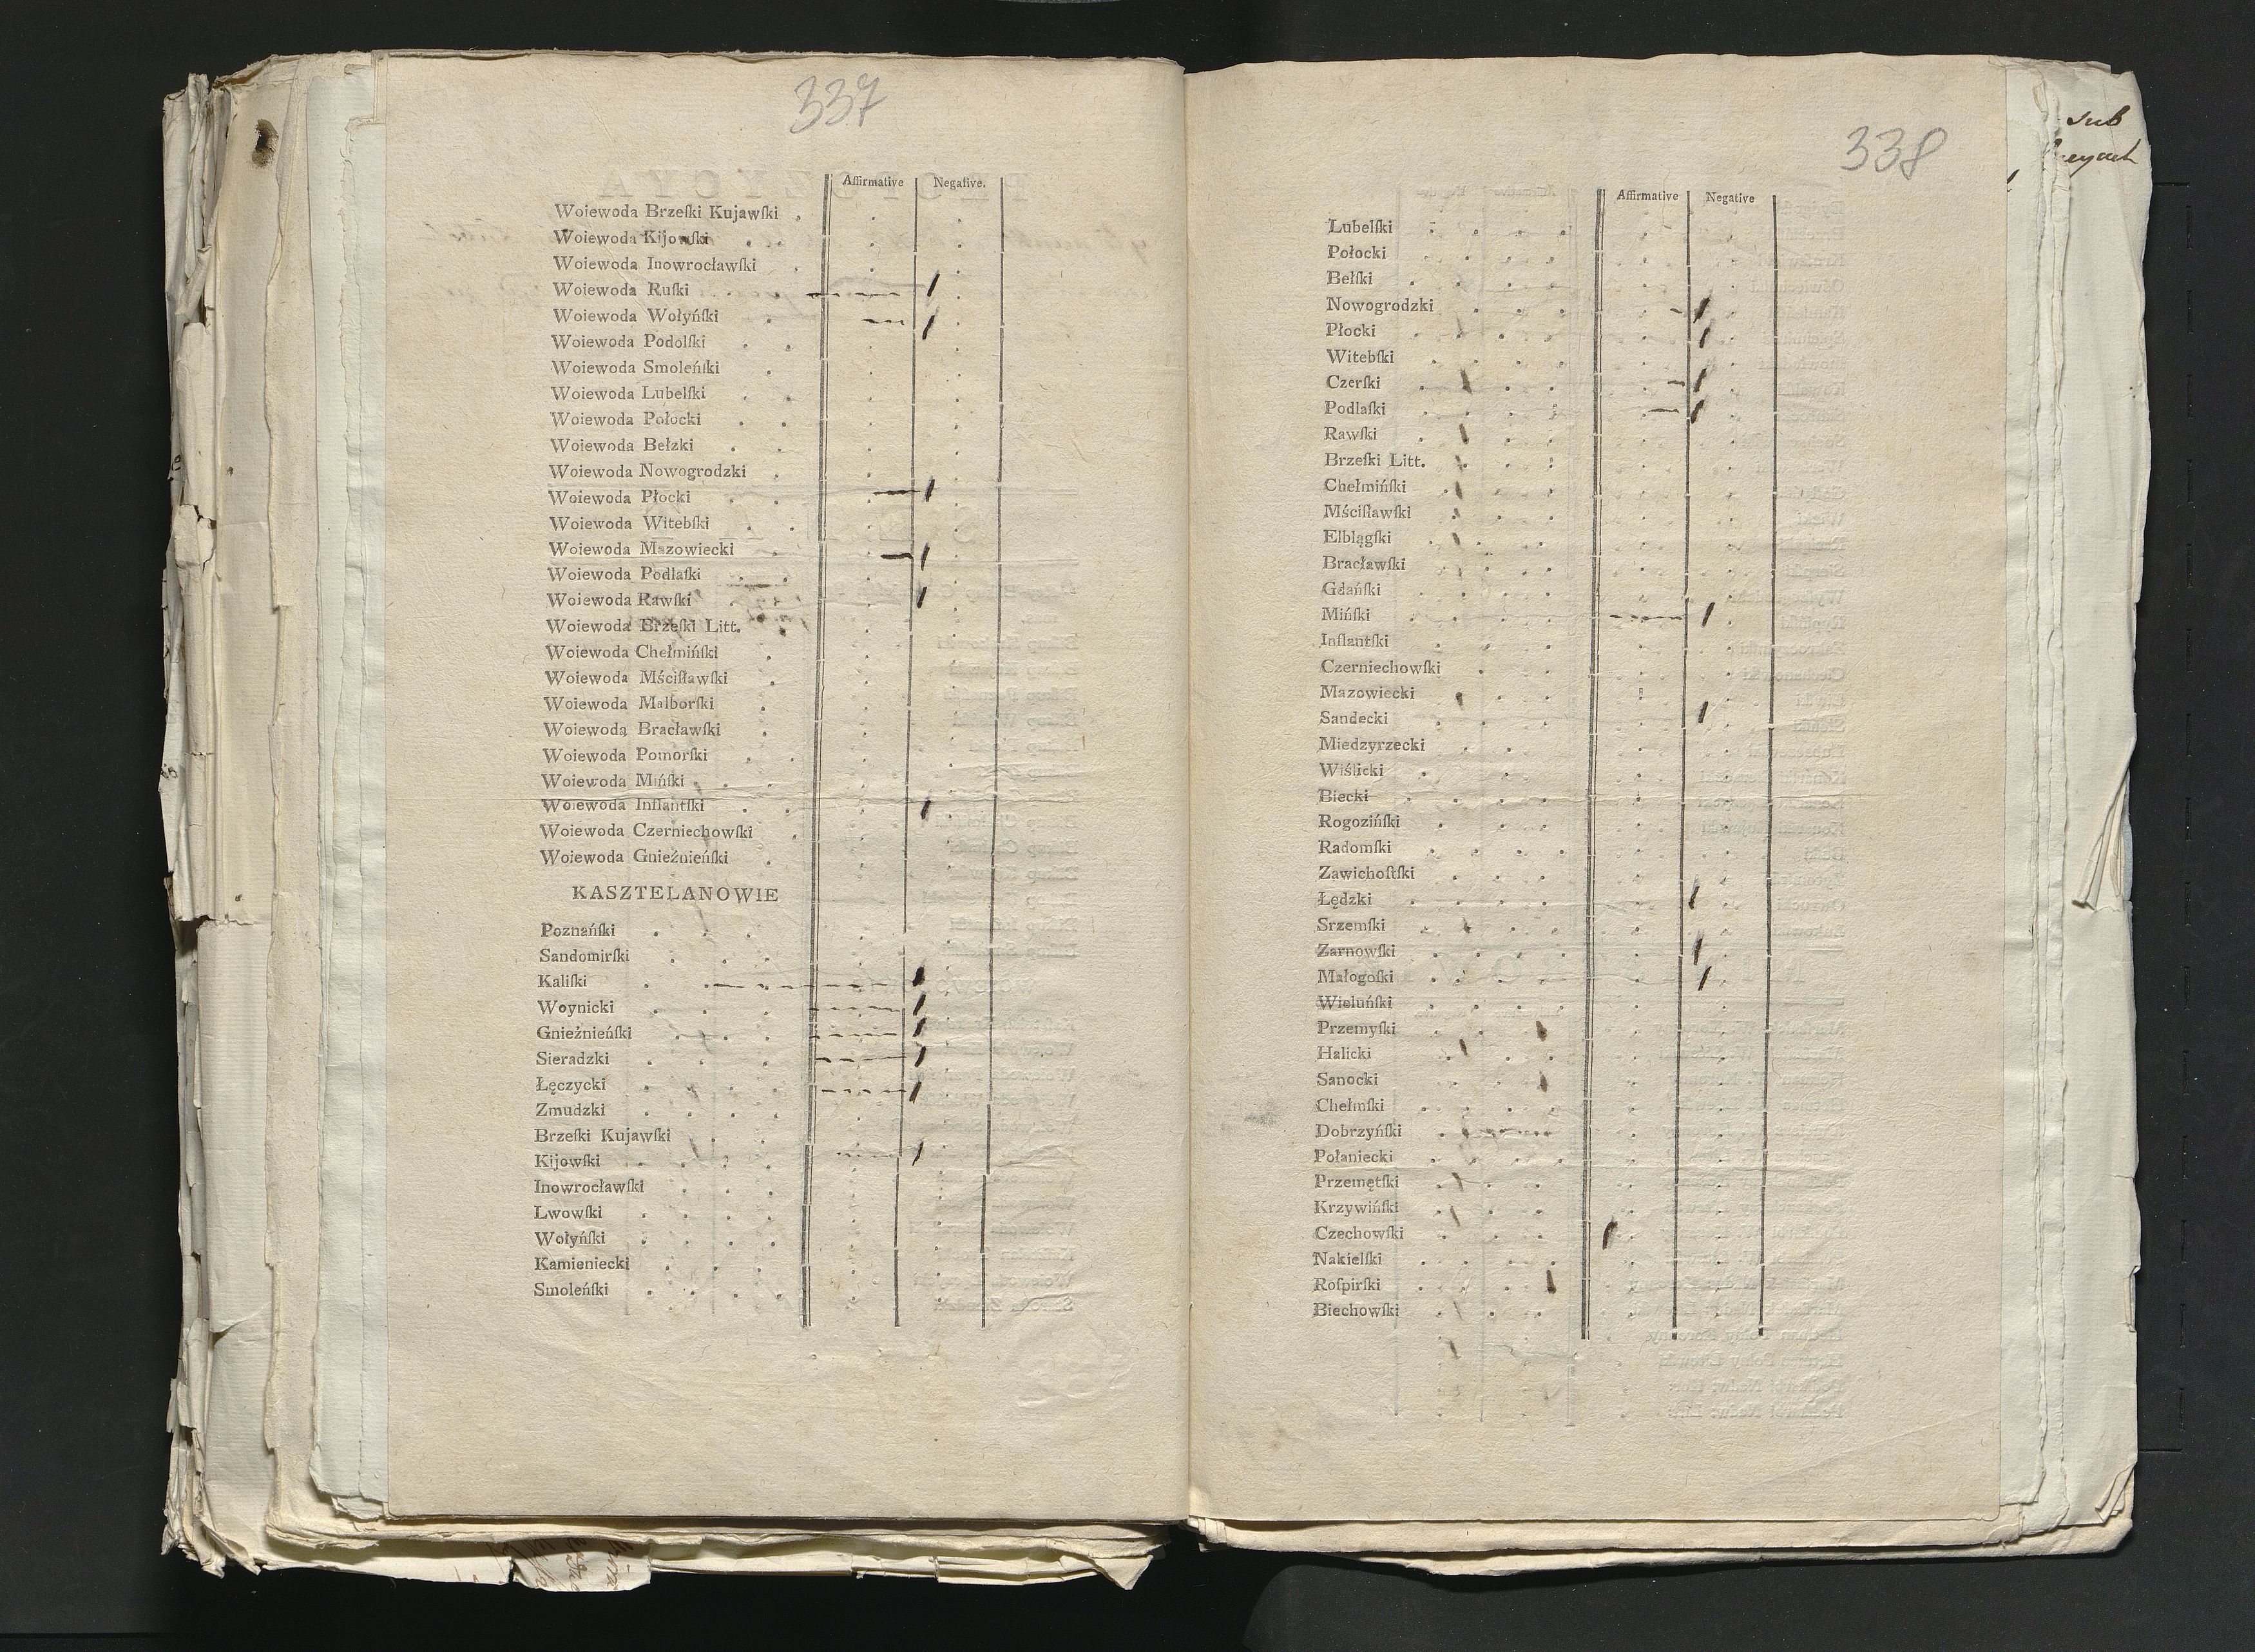 337
Affirmative Negative.
Woiewoda Brzeſki Kujawſki
Woiewoda Kijowſki
Woiewoda Inowrocławſki
Woiewoda Ruſki
Woiewoda Wołyńſki
Woiewoda Podolſki
Woiewoda Smoleńſki
Woiewoda Lubelſki
Woiewoda Połocki
Woiewoda Bełzki
Woiewoda Nowogrodzki
Woiewoda Płocki
Woiewoda Witebſki
Woiewoda Mazowiecki
Woiewoda Podlaſki
Woiewoda Rawſki
Woiewoda Brzeſki Litt.
Woiewoda Chełmińſki
Woiewoda Mściſławſki
Woiewoda Malborſki
Woiewoda Bracławſki
Woiewoda Pomorſki
Woiewoda Mińſki
Woiewoda Inflantſki
Woiewoda Czerniechowſki
Woiewoda Gnieźnieńſki
KASZTELANOWIE
Poznańſki
Sandomirſki
Kaliſki
Woynicki
Gnieźnieńſki
Sieradzki
Łęczycki
Zmudzki
Brzeſki Kujawſki
Kijowſki
Inowrocławſki
Lwowſki
Wołyńſki
Kamieniecki
Smoleńſki
338
Affirmative Negative
Lubelſki
Połocki
Bełſki
Nowogrodzki
Płocki
Witebſki
Czerſki
Podlaſki
Rawſki
Brzeſki Litt.
Chełmińſki
Mściſławſki
Elblągſki
Bracławſki
Gdańſki
Mińſki
Inflantſki
Czerniechowſki
Mazowiecki
Sandecki
Miedzyrzecki
Wiślicki
Biecki
Rogozińſki
Radomſki
Zawichoſtſki
Łędzki
Srzemſki
Zarnowſki
Małogoſki
Wieluńſki
Przemyſki
Halicki
Sanocki
Chełmſki
Dobrzyńſki
Połaniecki
Przemętſki
Krzywińſki
Czechowſki
Nakielſki
Roſpirſki
Biechowſki
sub